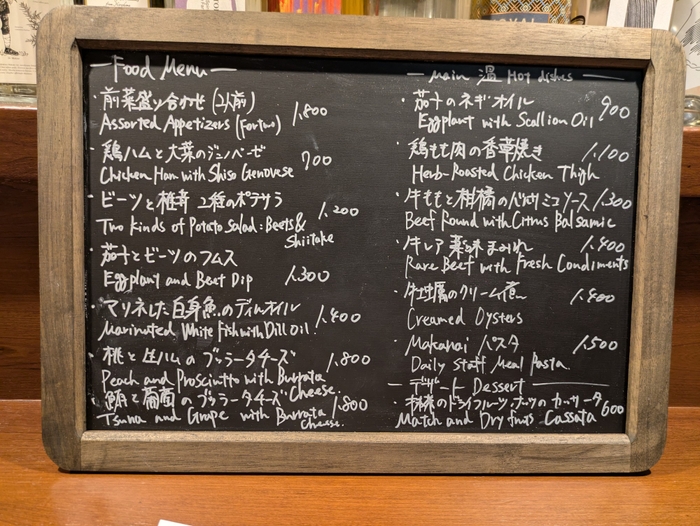 Food Menu
・前菜盛り合わせ (2人前) 1,800
Assorted Appetizers (For two)
・鶏ハムと大葉のジェノベーゼ 700
Chicken Ham with Shiso Genovese
・ビーツと椎茸 2種のポテサラ 1,200
Two kinds of Potato Salad: Beets &
Shiitake
・茄子とビーツのフムス 1,300
Eggplant and Beet Dip
・マリネした白身魚のディルオイル 1,400
Marinated White Fish with Dill Oil
・桃と生ハムのブッラータチーズ 1,800
Peach and Prosciutto with Burrata
Cheese.
・鮪と葡萄のブッラータチーズ 1,800
Tsuna and Grape with Burrata
Cheese.
Main 温 Hot dishes
・茄子のネギオイル 900
Eggplant with Scallion Oil
・鶏もも肉の香草焼き 1,100
Herb-Roasted Chicken Thigh
・牛ももと柑橘のバルサミコソース 1,300
Beef Round with Citrus Balsamic
・牛レア 薬味まみれ 1,400
Rare Beef with Fresh Condiments
・牡蠣のクリーム煮 1,400
Creamed Oysters
・Makanai パスタ 1,500
Daily Staff Meal Pasta.
デザート Dessert
・抹茶のドライフルーツ、ナッツのカッサータ 600
Match and Dry fruits Cassata